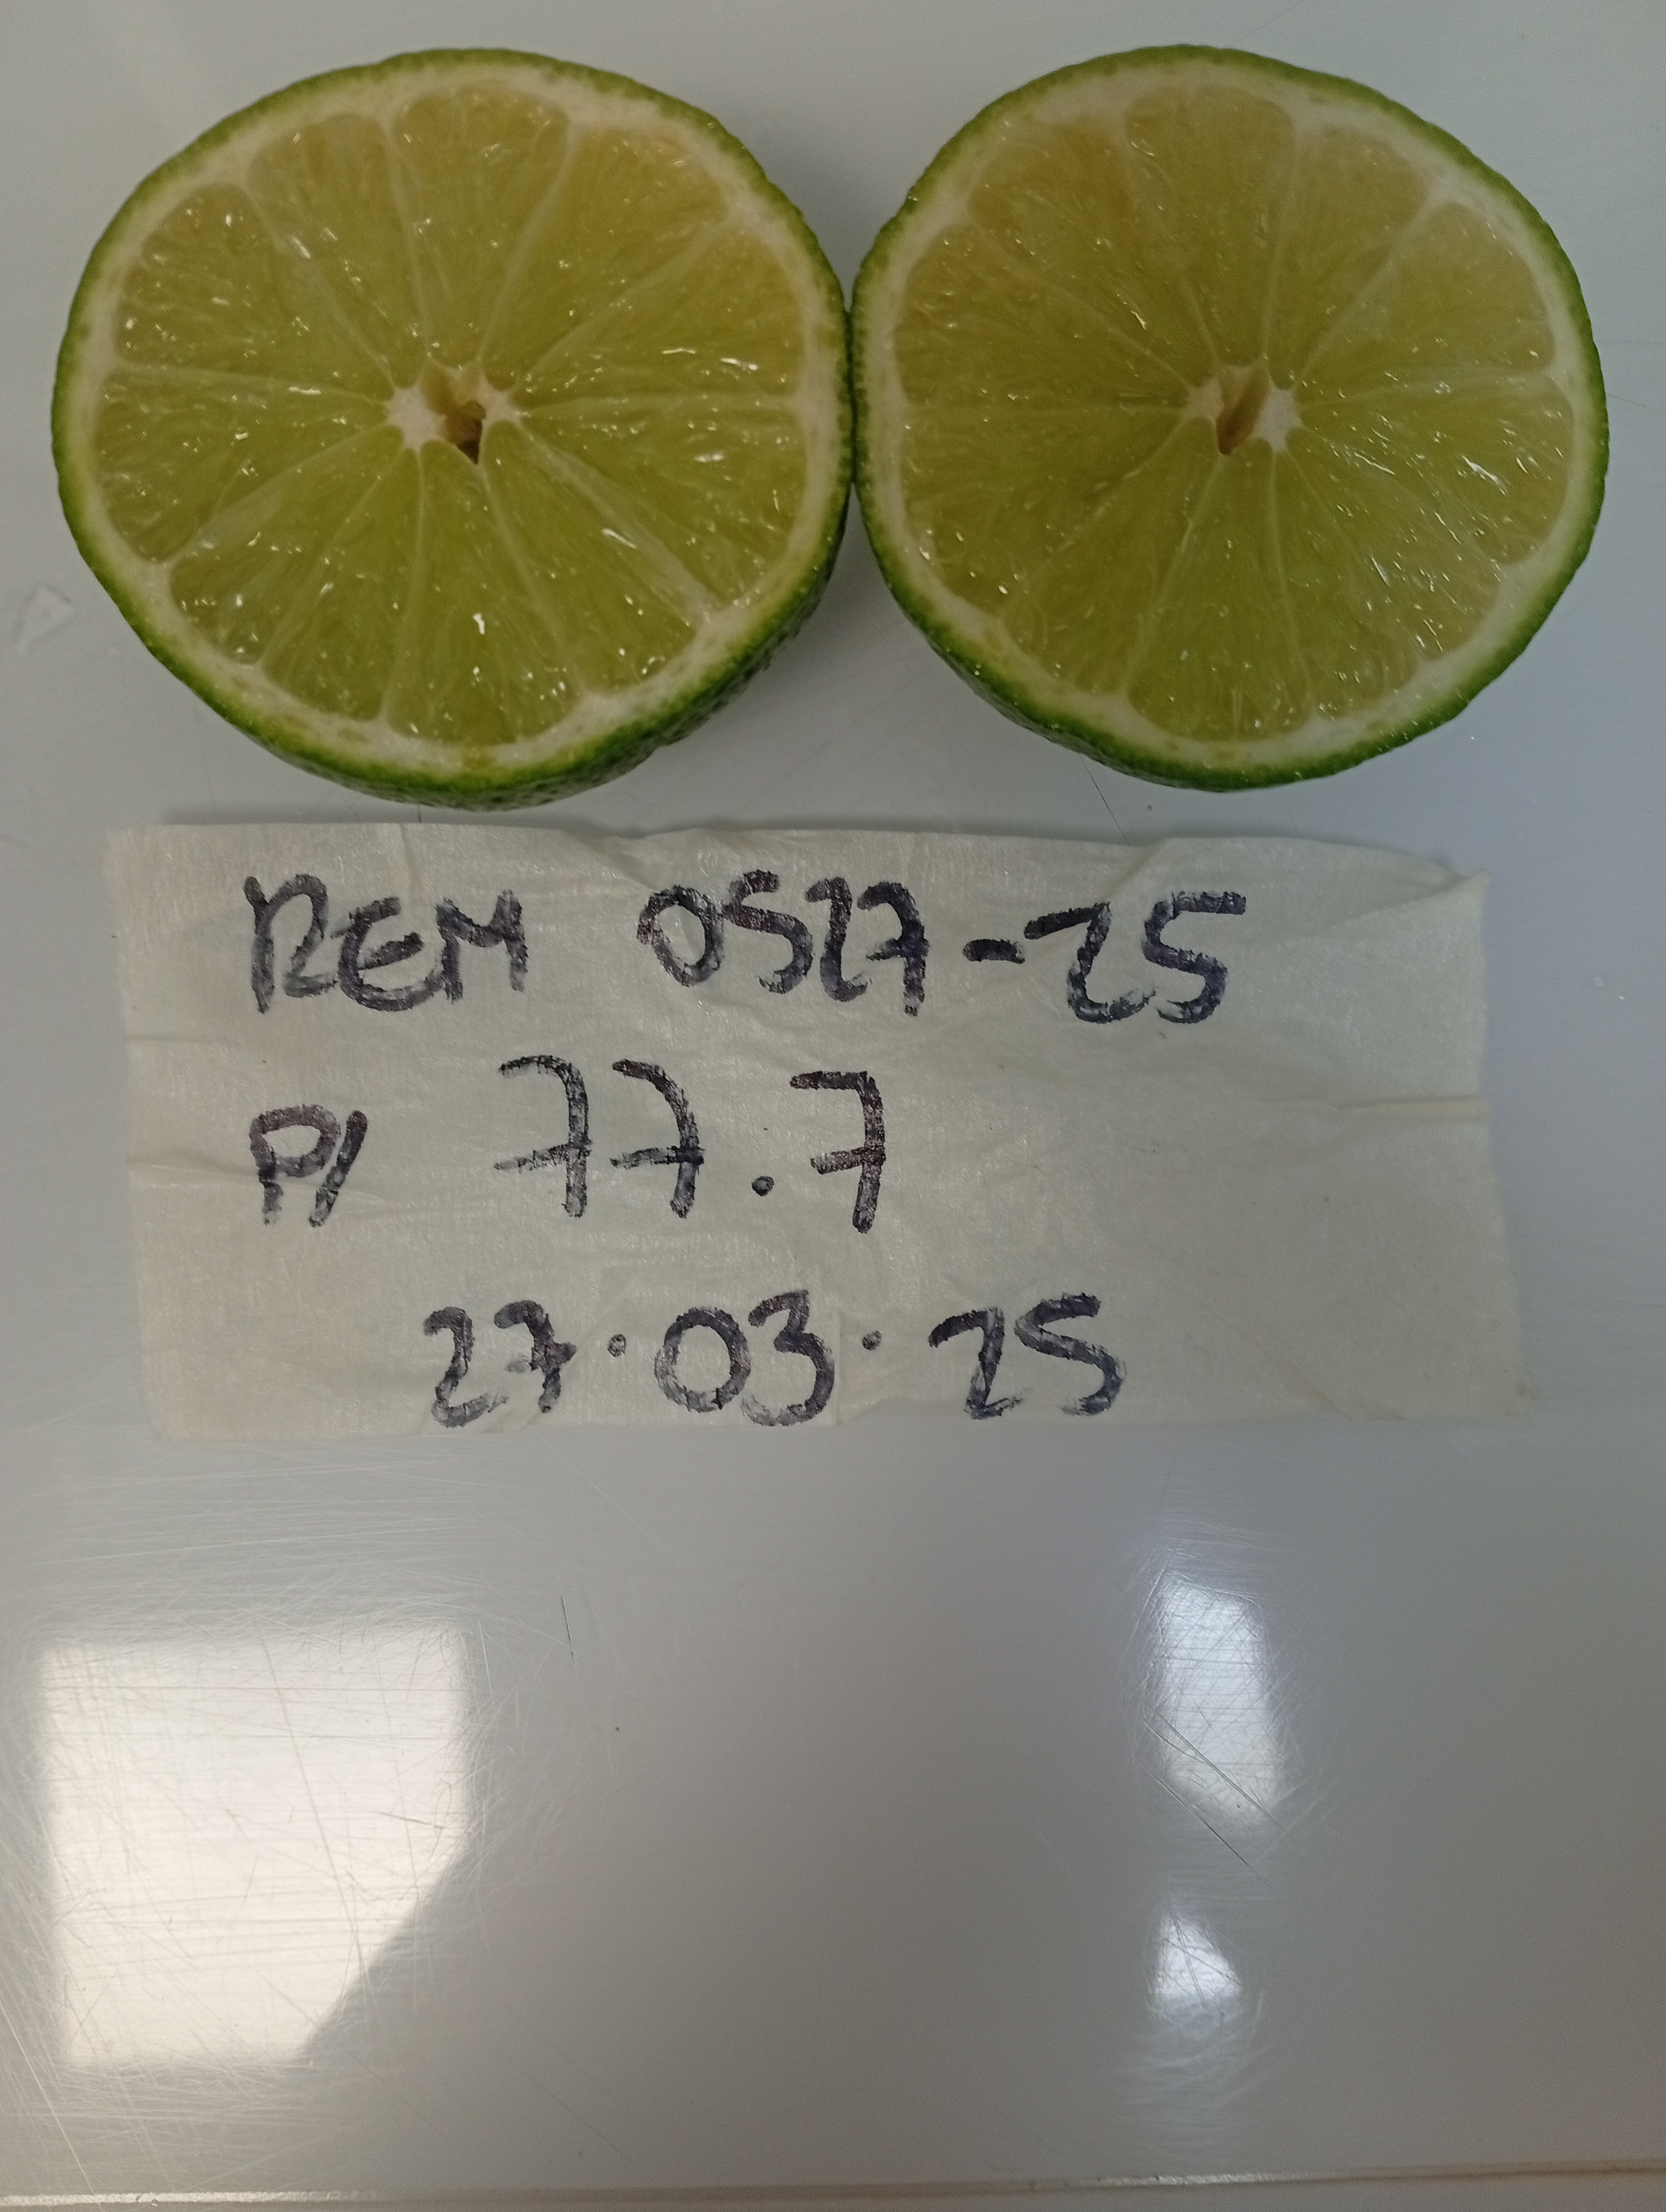 REM 0527-25
P/ 77.7
27.03.25